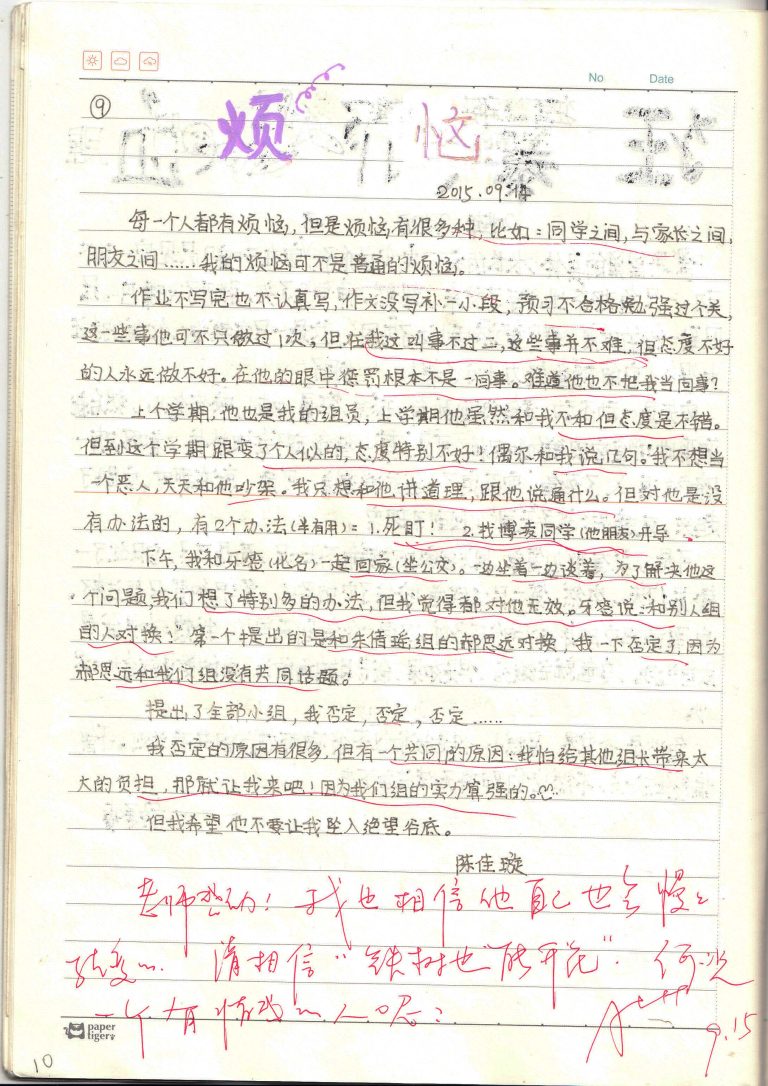 No Date
⑨ 烦 恼
2015.09.14
每一个人都有烦恼,但是烦恼有很多种,比如:同学之间,与家长之间,
朋友之间……我的烦恼可不是普通的烦恼。
作业不写完也不认真写,作文没写补一小段,预习不合格勉强过个关,
这一些事他可不只做过1次,但在我这叫事不过二,这些事并不难,但态度不好
的人永远做不好。在他的眼中惩罚根本不是一回事。难道他也不把我当回事?
上个学期,他也是我的组员,上学期他虽然和我不和但态度是不错。
但到这个学期跟变了个人似的,态度特别不好!偶尔和我说几句。我不想当
一个恶人,天天和他吵架。我只想和他讲道理,跟他说通什么。但对他是没
有办法的,有2个办法(半有用)=1.死盯! 2.找博凌同学(他朋友)开导
下午,我和牙签(化名)一起回家(坐公交)。一边坐着一边谈着,为了解决他这
个问题,我们想了特别多的办法,但我觉得都对他无效。牙签说:和别人组
的人对换!"第一个提出的是和朱倩瑶组的郝思远对换,我一下否定了,因为
郝思远和我们组没有共同话题。
提出了全部小组,我否定,否定,否定……
我否定的原因有很多,但有一个共同的原因:我怕给其他组长带来太
大的负担,那就让我来吧!因为我们组的实力算强的。
但我希望他不要让我坠入绝望谷底。
陈佳璇
老师感动!我也相信他自己也会慢慢
转变的。请相信"铁树也能开花"。何况
一个有情感的人呢?
A+++ 9.15
paper
tiger
10